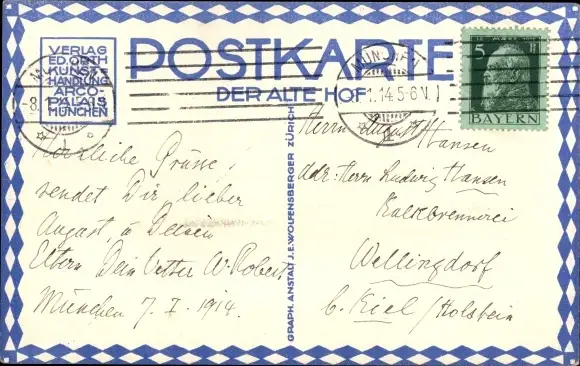 VERLAG
ED. ORTH
KUNST
HANDLUNG
ARCO-
PALAIS
MÜNCHEN
POSTKARTE
DER ALTE HOF
MÜNCHEN
-8.
1.14 5-6 V.
5
BAYERN
Herzliche Grüsse
sendet Dir, lieber
August, u Deinen
Eltern Dein Vetter W. Robert
München 7. I. 1914.
GRAPH. ANSTALT J.E. WOLFENSBERGER ZÜRICH
Herrn August Hansen
adr. Herrn Ludwig Hansen
Kalkbrennerei
Wellingdorf
b. Kiel / Holstein